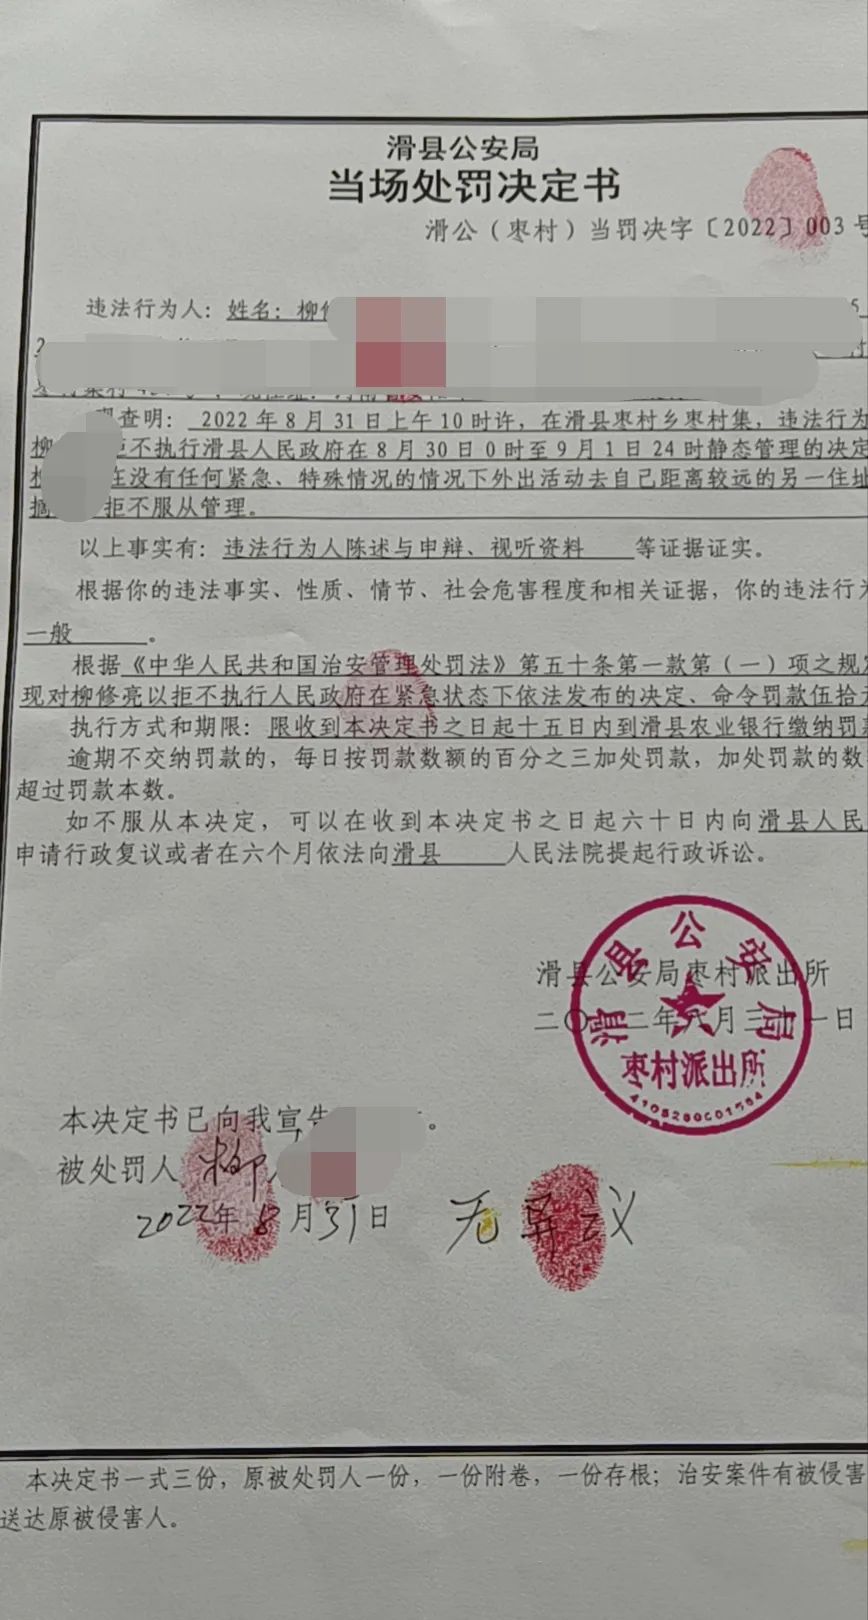 滑县公安局
当场处罚决定书
滑公（枣村）当罚决字〔2022〕003号
违法行为人：姓名：柳
查明：2022年8月31日上午10时许，在滑县枣村乡枣村集，违法行为
柳 拒不执行滑县人民政府在8月30日0时至9月1日24时静态管理的决定
在没有任何紧急、特殊情况的情况下外出活动去自己距离较远的另一住址
摘 拒不服从管理。
以上事实有：违法行为人陈述与申辩、视听资料 等证据证实。
根据你的违法事实、性质、情节、社会危害程度和相关证据，你的违法行为
一般 。
根据《中华人民共和国治安管理处罚法》第五十条第一款第（一）项之规定
现对柳修亮以拒不执行人民政府在紧急状态下依法发布的决定、命令罚款伍拾元
执行方式和期限：限收到本决定书之日起十五日内到滑县农业银行缴纳罚款
逾期不交纳罚款的，每日按罚款数额的百分之三加处罚款，加处罚款的数
超过罚款本数。
如不服从本决定，可以在收到本决定书之日起六十日内向滑县人民
申请行政复议或者在六个月依法向滑县 人民法院提起行政诉讼。
滑县公安局枣村派出所
二〇二二年八月三十一日
滑县公安局
枣村派出所
本决定书已向我宣告 。
被处罚人 柳
2022年8月31日 无异议
本决定书一式三份，原被处罚人一份，一份附卷，一份存根；治安案件有被侵害
送达原被侵害人。